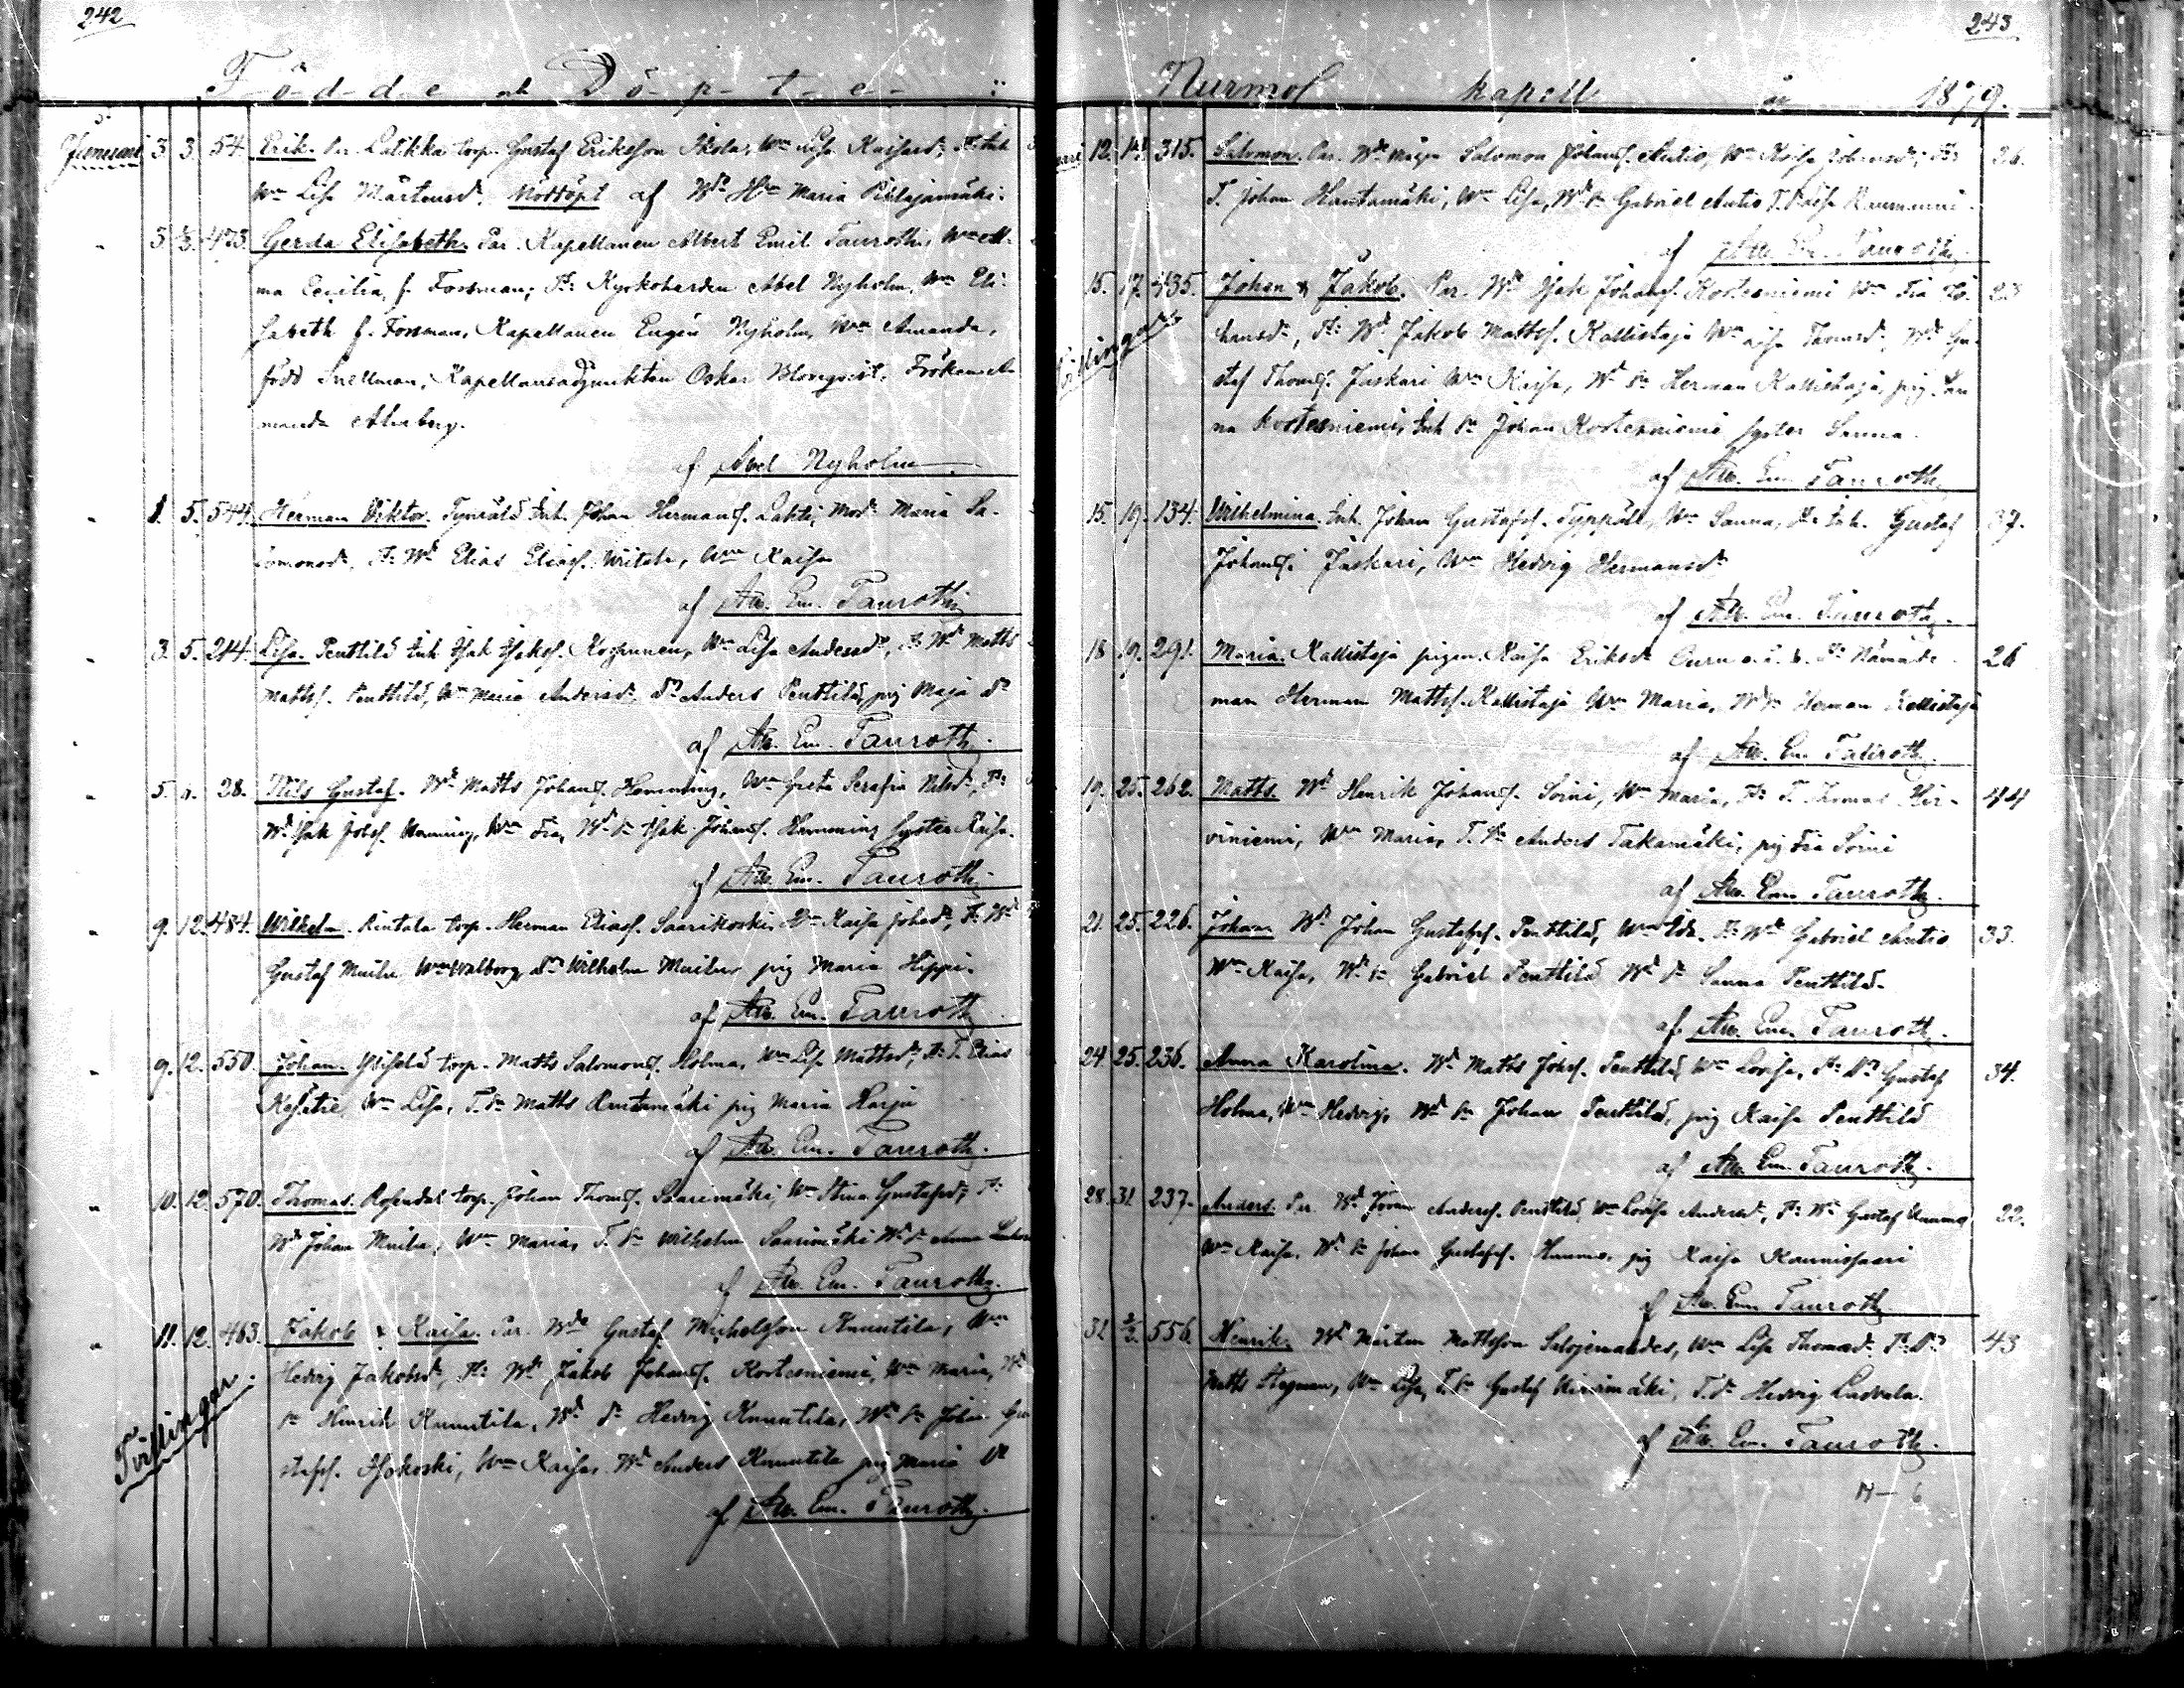 242
Födde och Döpte i
Januari 3. 3. 54. Erik. Par. Latikka torp. Gustaf Eriksson Skola, Wm Lisa Kaisasdr,
Wm Lisa Mårtensd. Nöddöpt af Wds Hm Maria Pihlajamäki.
3. 473. Gerda Elisabeth. Par. Kapellanen Albert Emil Tauroth, Wm Al-
ma Cecilia, f. Forsman; Ft: Kyrkoherden Abel Nyholm, Wm Eli-
sabeth f. Forsman, Kapellanen Eugén Nyholm, Wm Amanda,
född Snellman, Kapellansadjunkten Oskar Blomqvist, Fröken A-
manda Alraberg.
af Abel Nyholm.
1. 5. 544. Herman Viktor. Inh. Johan Hermans. Lahti, Mod. Maria Sa-
lomonsd. Ft: Wd Elias Eliass. Wiitala, Wm Kaisa
af Alb. Em. Tauroth
3. 5. 244. Lisa. Penttilä Inh. Isak Isaks. Korpunen, Wm Lisa Andersdr, Ft: Wd Matts
Mattss. Penttilä, Wm Maria Andersdr, Dr Anders Penttilä, pig Maja dr
af Alb. Em. Tauroth.
5. 28. Nils Gustaf. Wd Matts Johans. Hemming, Wm Greta Serafia Nilsdr, Ft:
Wd Isak Johss. Wm Fia, Wd Sn Isak Johans. Hemming syster Kaisa.
af Alb. Em. Tauroth.
9. 12. 484. Wilhelm. Rintala torp. Herman Eliass. Saarikoski, Wm Kaisa Johsdr, Ft: Wd
Gustaf Muilu Wm Walborg, Dr Wilhelm Muilu, pig Maria Hippi.
af Alb. Em. Tauroth
9. 12. 550. Johan. torp. Matts Salomons. Holma, Wm Lisa Mattsdr; Ft: T. Elias
Wm Lisa, T. Sn Matts Rintamäki pig Maria Harju
af Alb. Em. Tauroth.
10. 12. 570. Thomas. Rosendal torp. Johan Thomss. Saarimäki, Wm Stina Gustafsdr; Ft:
Wd Johan Muilu, Wm Maria, T. Sn Wilhelm Saarimäki Wd dr Anna
af Alb. Em. Tauroth.
11. 12. 463. Jakob & Kaisa. Par. Wd Gustaf Michelsson Knuutila, Wm
Hedvig Jakobsdr, Ft: Wd Jakob Johans. Kortesniemi, Wm Maria, Wd
Sn Henrik Knuutila, Wd dr Hedvig Knuutila, Wd Sn Johan Gu-
stafss. Isokoski, Wm Kaisa, Wd Anders Knuutila pig Maria
Tvillingar.
af Alb. Em. Tauroth.
243
Nurmo kapell år 1879.
12. 315. Salomon. Par. Wd Måg Salomon Johans. Autio, Wm Kaisa Johansdr; Ft: 26.
T. Johan Hautamäki, Wm Lisa, Wd Sn Gabriel Autio T. Kaisa
af Alb. Em. Tauroth
15. 17. 435. Johan & Jakob. Par. Wd Isak Johans. Kortesniemi Wm Fia Jo- 23
hansdr, Ft: Wd Jakob Mattss. Kallistaja Wm Thomsd. Wd Gu-
Tvillingar
staf Thomss. Juskari Wm Kaisa, Wd Sn Herman Kallistaja, pig. San
na Kortesniemi, Inh. Sn Johan Kortesniemi syster Sanna.
af Alb. Em. Tauroth
15. 19. 134. Wilhelmina. Inh. Johan Gustafss. Typpälä, Wm Sanna, Ft: Inh. Gustaf 37.
Johans. Juskari, Wm Hedvig Hermansdr
af Alb. Em. Tauroth.
18 19. 291. Maria. Kallistaja pigan Kaisa Eriksdr Ft: Nämnde- 26
man Herman Mattss. Kallistaja Wm Maria, Wd Sn Herman Kallistaja
af Alb. Em. Tauroth.
19. 25. 262. Matts. Wd Henrik Johans. Soini, Wm Maria, Ft: T. Thomas Hir- 44
viniemi, Wm Maria, T. Sn Anders Takamäki, pig Fia Soini
af Alb. Em. Tauroth.
21. 25. 226. Johan Wd Johan Gustafss. Penttilä, Wm Ida. Ft: Wd Gabriel Autio 33.
Wm Kaisa, Wd Sn Gabriel Penttilä Wd dr Sanna Penttilä.
af Alb. Em. Tauroth.
24. 25. 236. Anna Karolina. Wd Matts Johss. Penttilä, Wm Lovisa, Ft: Gustaf 34.
Holma, Wm Hedvig, Wd Sn Johan Penttilä, pig Kaisa Penttilä
af Alb. Em. Tauroth.
28. 31. 237. Anders. Par. Wd Johan Anderss. Penttilä, Wm Lovisa Andersdr, Ft: Wd Gustaf 22.
Wm Kaisa. Wd Sn Johan Gustafss. pig Kaisa Kaunissaari
af Alb. Em. Tauroth.
31. 2/2. 556. Henrik. Wd Mårten Mattsson Salojernandes, Wm Lisa Thomasdr. Ft: 43
Matts Stegman, Wm Lisa, T. Sn Gustaf T. dr Hedvig
af Alb. Em. Tauroth.